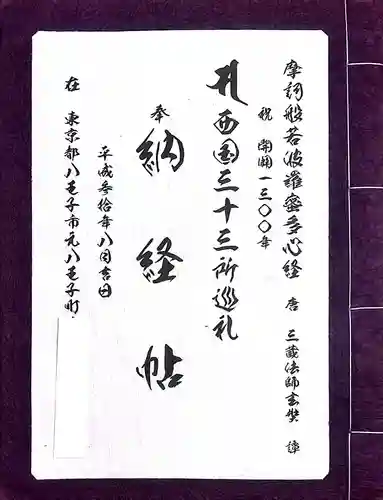 摩訶般若波羅蜜多心経 唐 三蔵法師玄奘 譯
祝 開創一三〇〇年
西国三十三所巡礼
奉
納経帖
平成参拾年八月吉日
在 東京都八王子市元八王子町